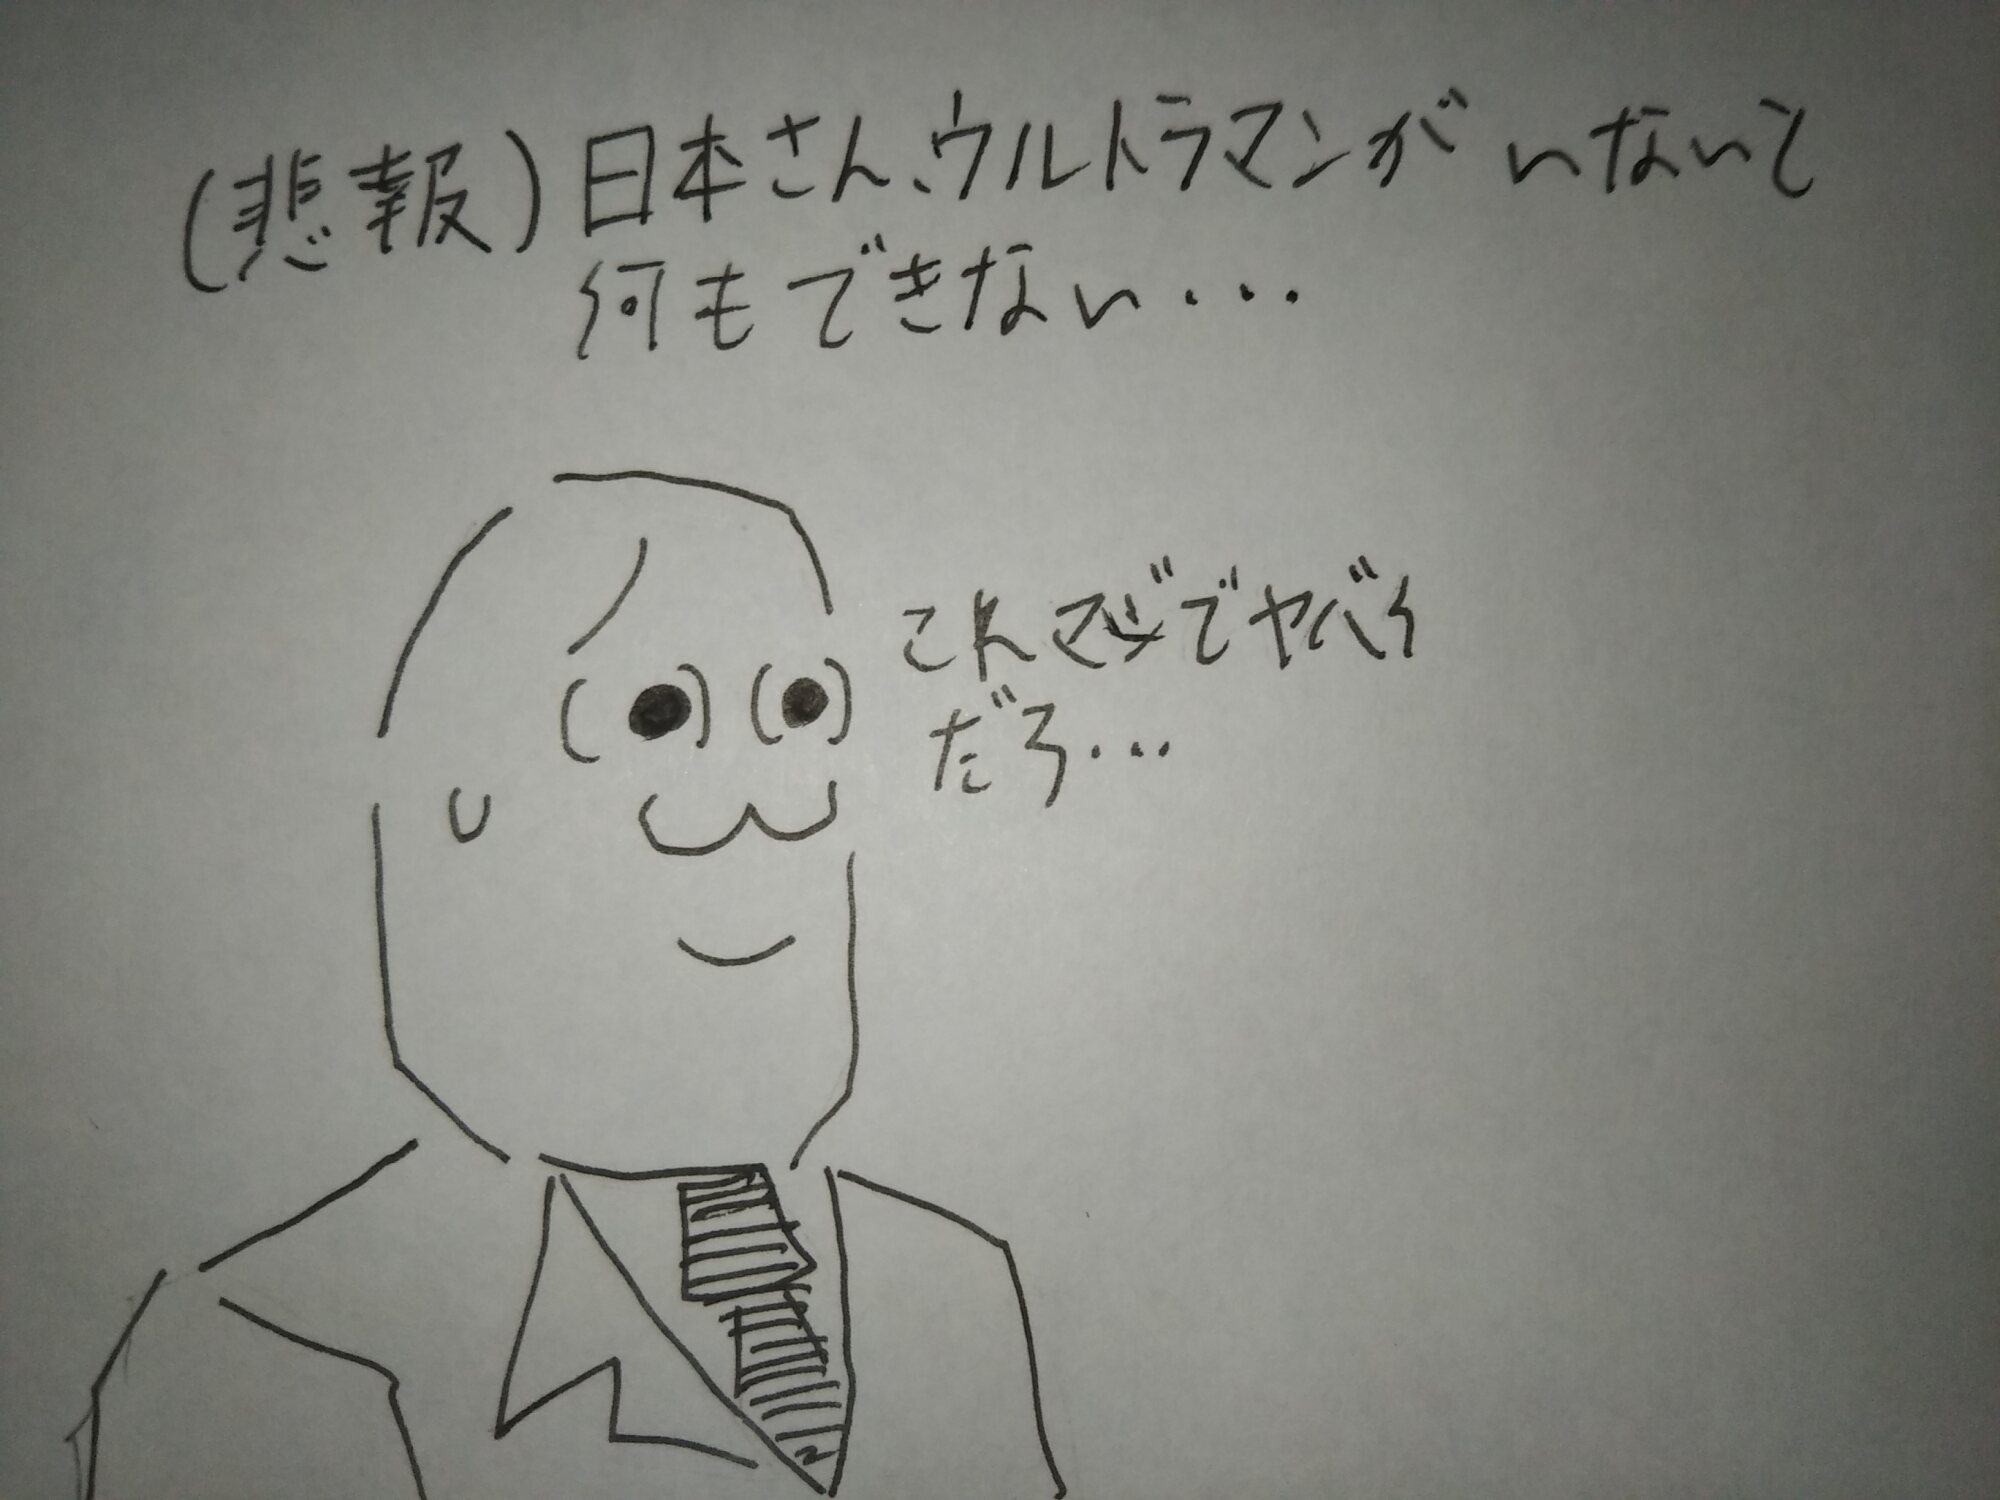 (悲報)日本さん、ウルトラマンがいないと
何もできない・・・
これマジでヤバイ
だろ・・・